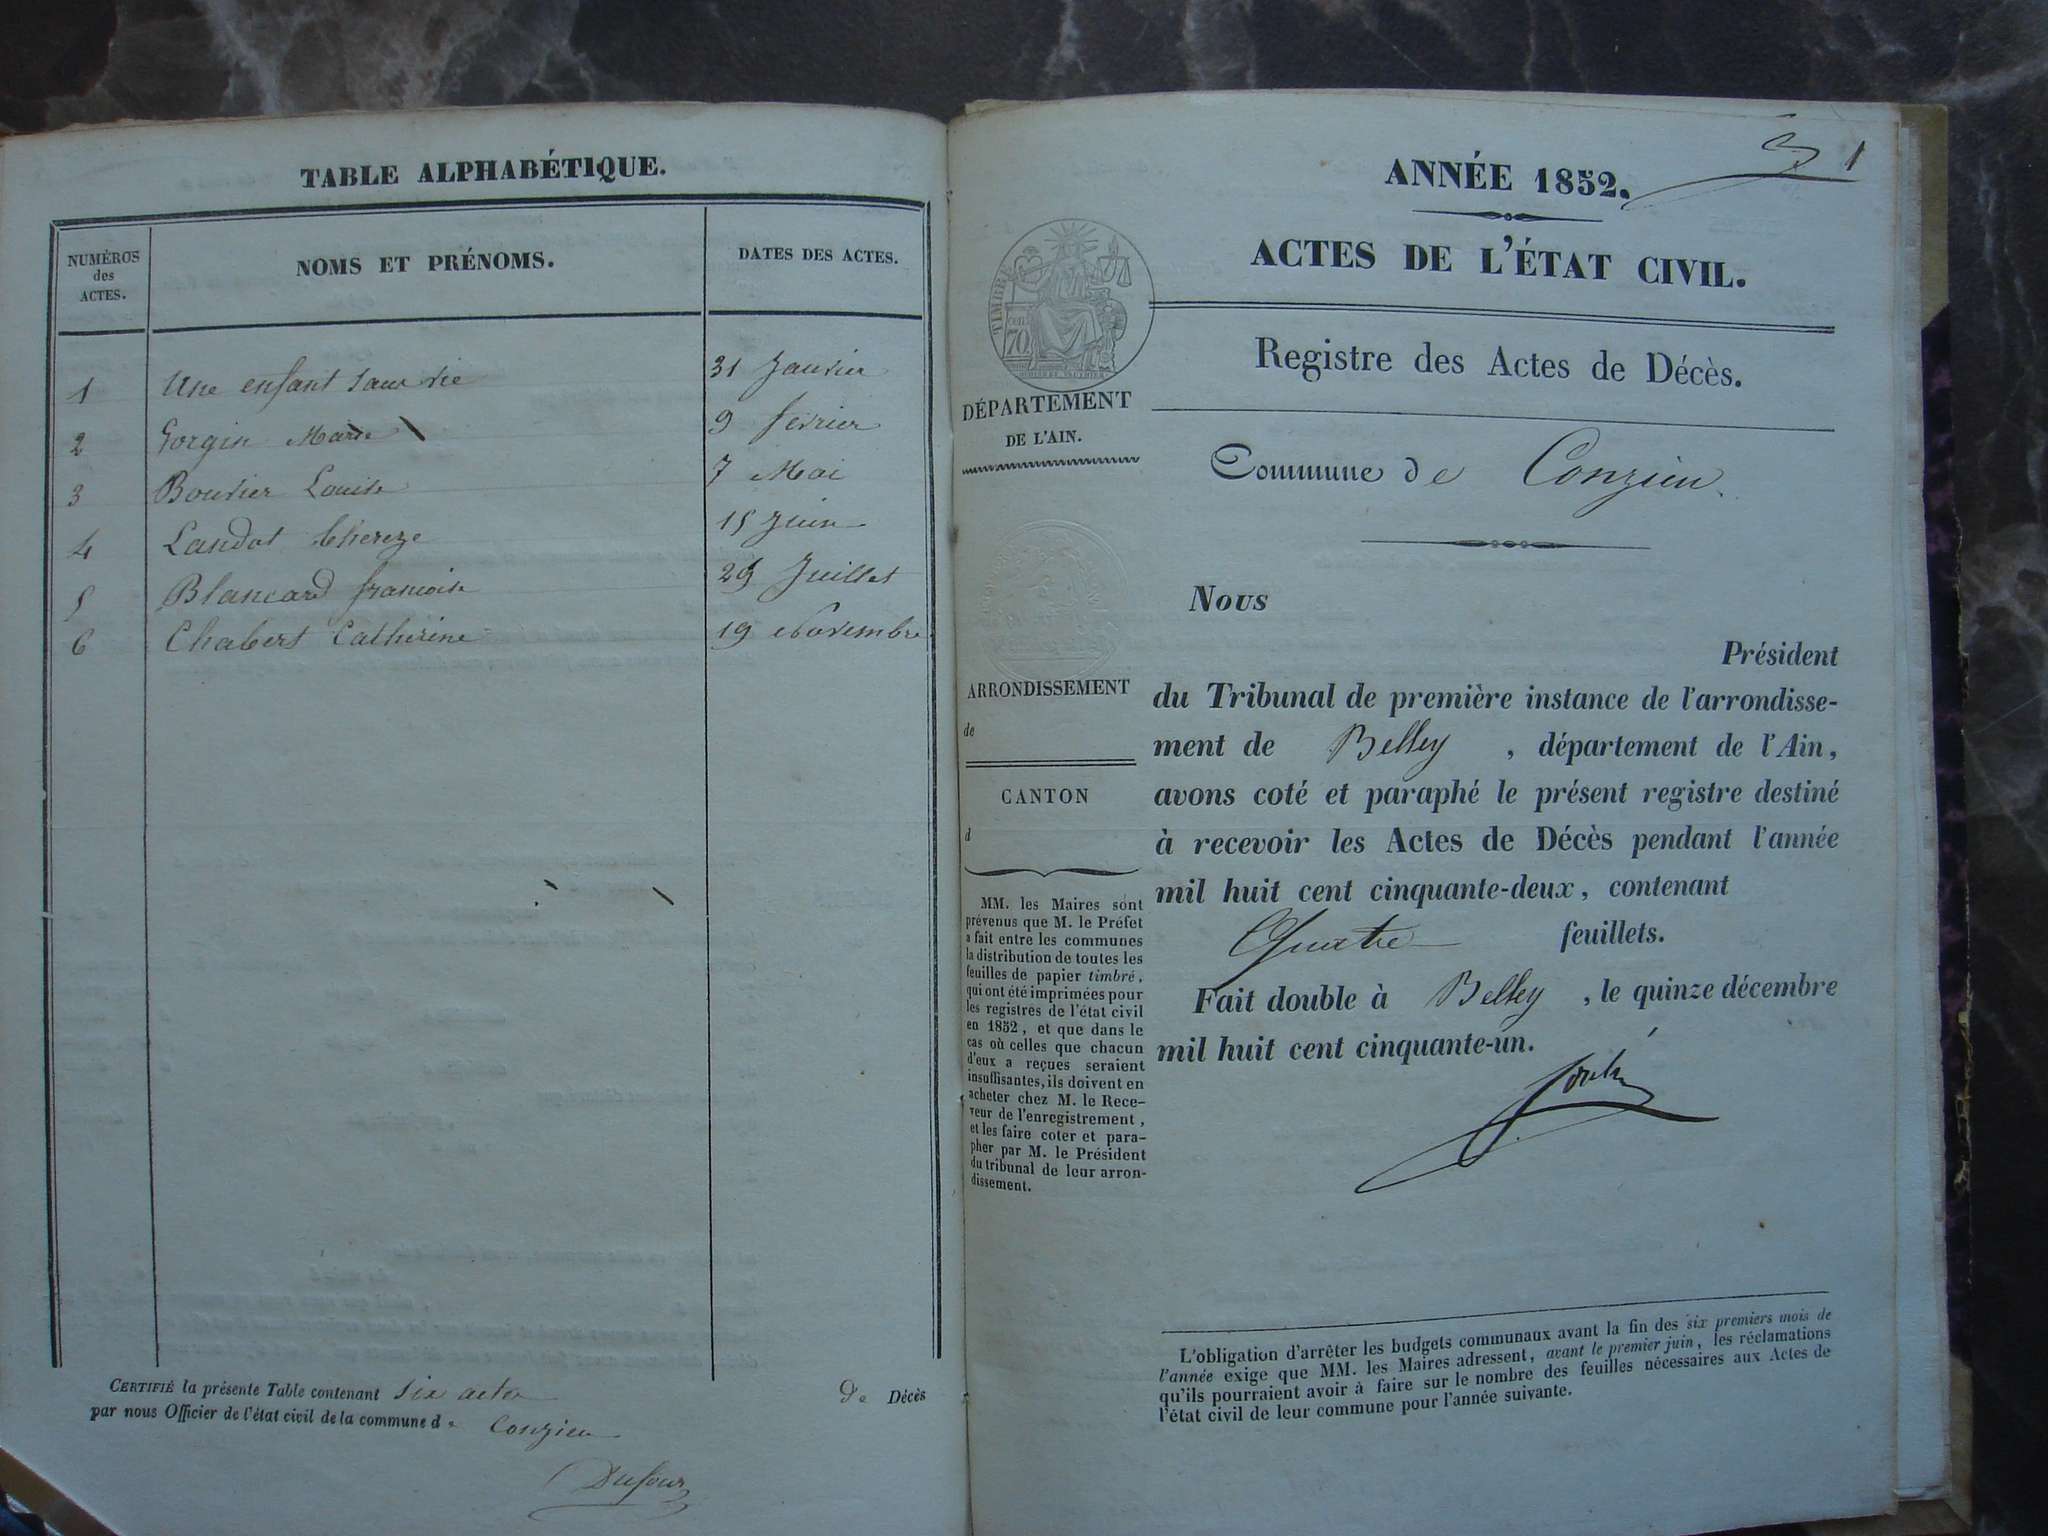 TABLE ALPHABÉTIQUE.
NUMÉROS
des
ACTES.
NOMS ET PRÉNOMS.
DATES DES ACTES.
1 Une enfant sans vie 31 Janvier
2 Gorgin Marie 9 fevrier
3 Bouvier Louise 7 Mai
4 Landot thereze 15 Juin
5 Blancard francoise 29 Juillet
6 Chabert Catherine 19 Novembre
CERTIFIÉ la présente Table contenant six actes de Décès
par nous Officier de l'état civil de la commune de Conzieu
Dufour
1
ANNÉE 1852.
ACTES DE L'ÉTAT CIVIL.
Registre des Actes de Décès.
TIMBRE
70
DÉPARTEMENT
DE L'AIN.
Commune de Conzieu.
ARRONDISSEMENT
de
CANTON
d
MM. les Maires sont
prévenus que M. le Préfet
a fait entre les communes
la distribution de toutes les
feuilles de papier timbré,
qui ont été imprimées pour
les registres de l'état civil
en 1852, et que dans le
cas où celles que chacun
d'eux a reçues seraient
insuffisantes, ils doivent en
acheter chez M. le Rece-
veur de l'enregistrement,
et les faire coter et para-
pher par M. le Président
du tribunal de leur arron-
dissement.
Nous
Président
du Tribunal de première instance de l'arrondisse-
ment de Belley, département de l'Ain,
avons coté et paraphé le présent registre destiné
à recevoir les Actes de Décès pendant l'année
mil huit cent cinquante-deux, contenant
Quatre feuillets.
Fait double à Belley, le quinze décembre
mil huit cent cinquante-un.
L'obligation d'arrêter les budgets communaux avant la fin des six premiers mois de
l'année exige que MM. les Maires adressent, avant le premier juin, les réclamations
qu'ils pourraient avoir à faire sur le nombre des feuilles nécessaires aux Actes de
l'état civil de leur commune pour l'année suivante.